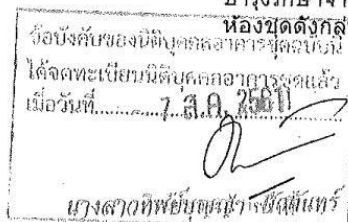 ห้องชุดดังกล่
ข้อบังคับของนิติบุคคลอาคารชุดฉบับนี้
ได้จดทะเบียนนิติบุคคลอาคารชุดแล้ว
เมื่อวันที่ 7 ส.ค. 2561
นางสาวทิพย์